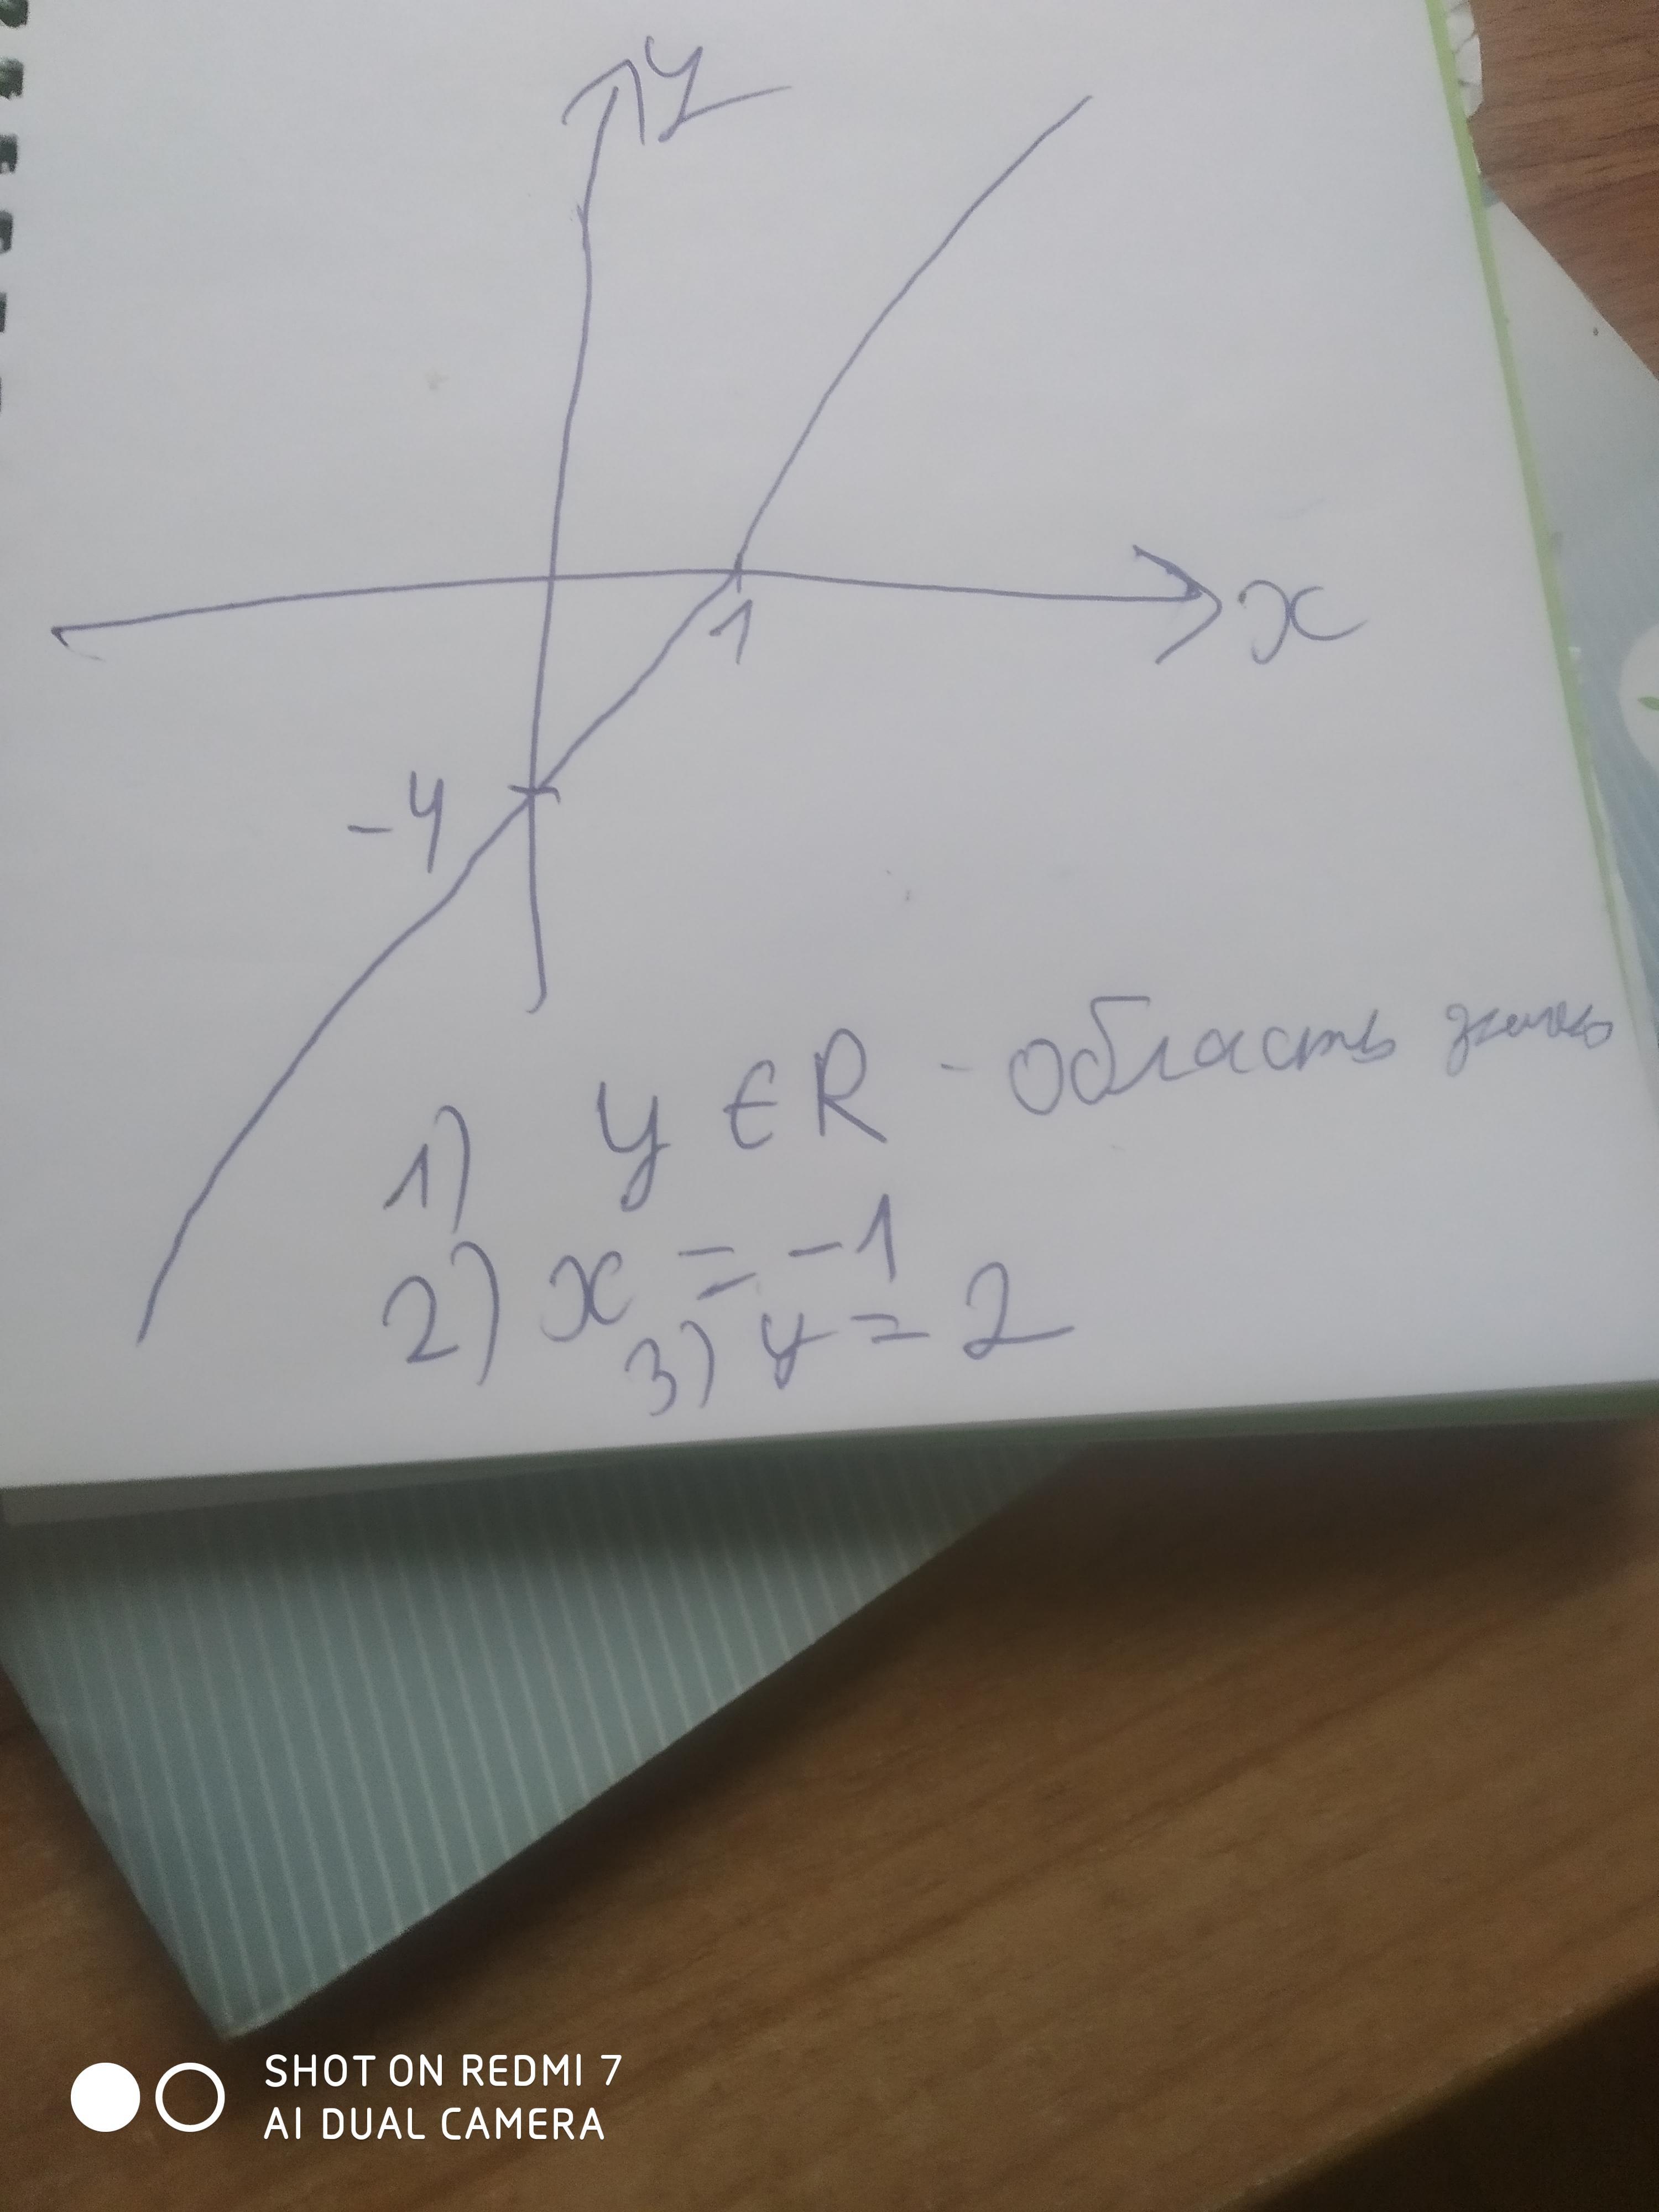 y
x
1
-4
1) y ∈ R - область
2) x = -1
3) y = 2
SHOT ON REDMI 7
AI DUAL CAMERA